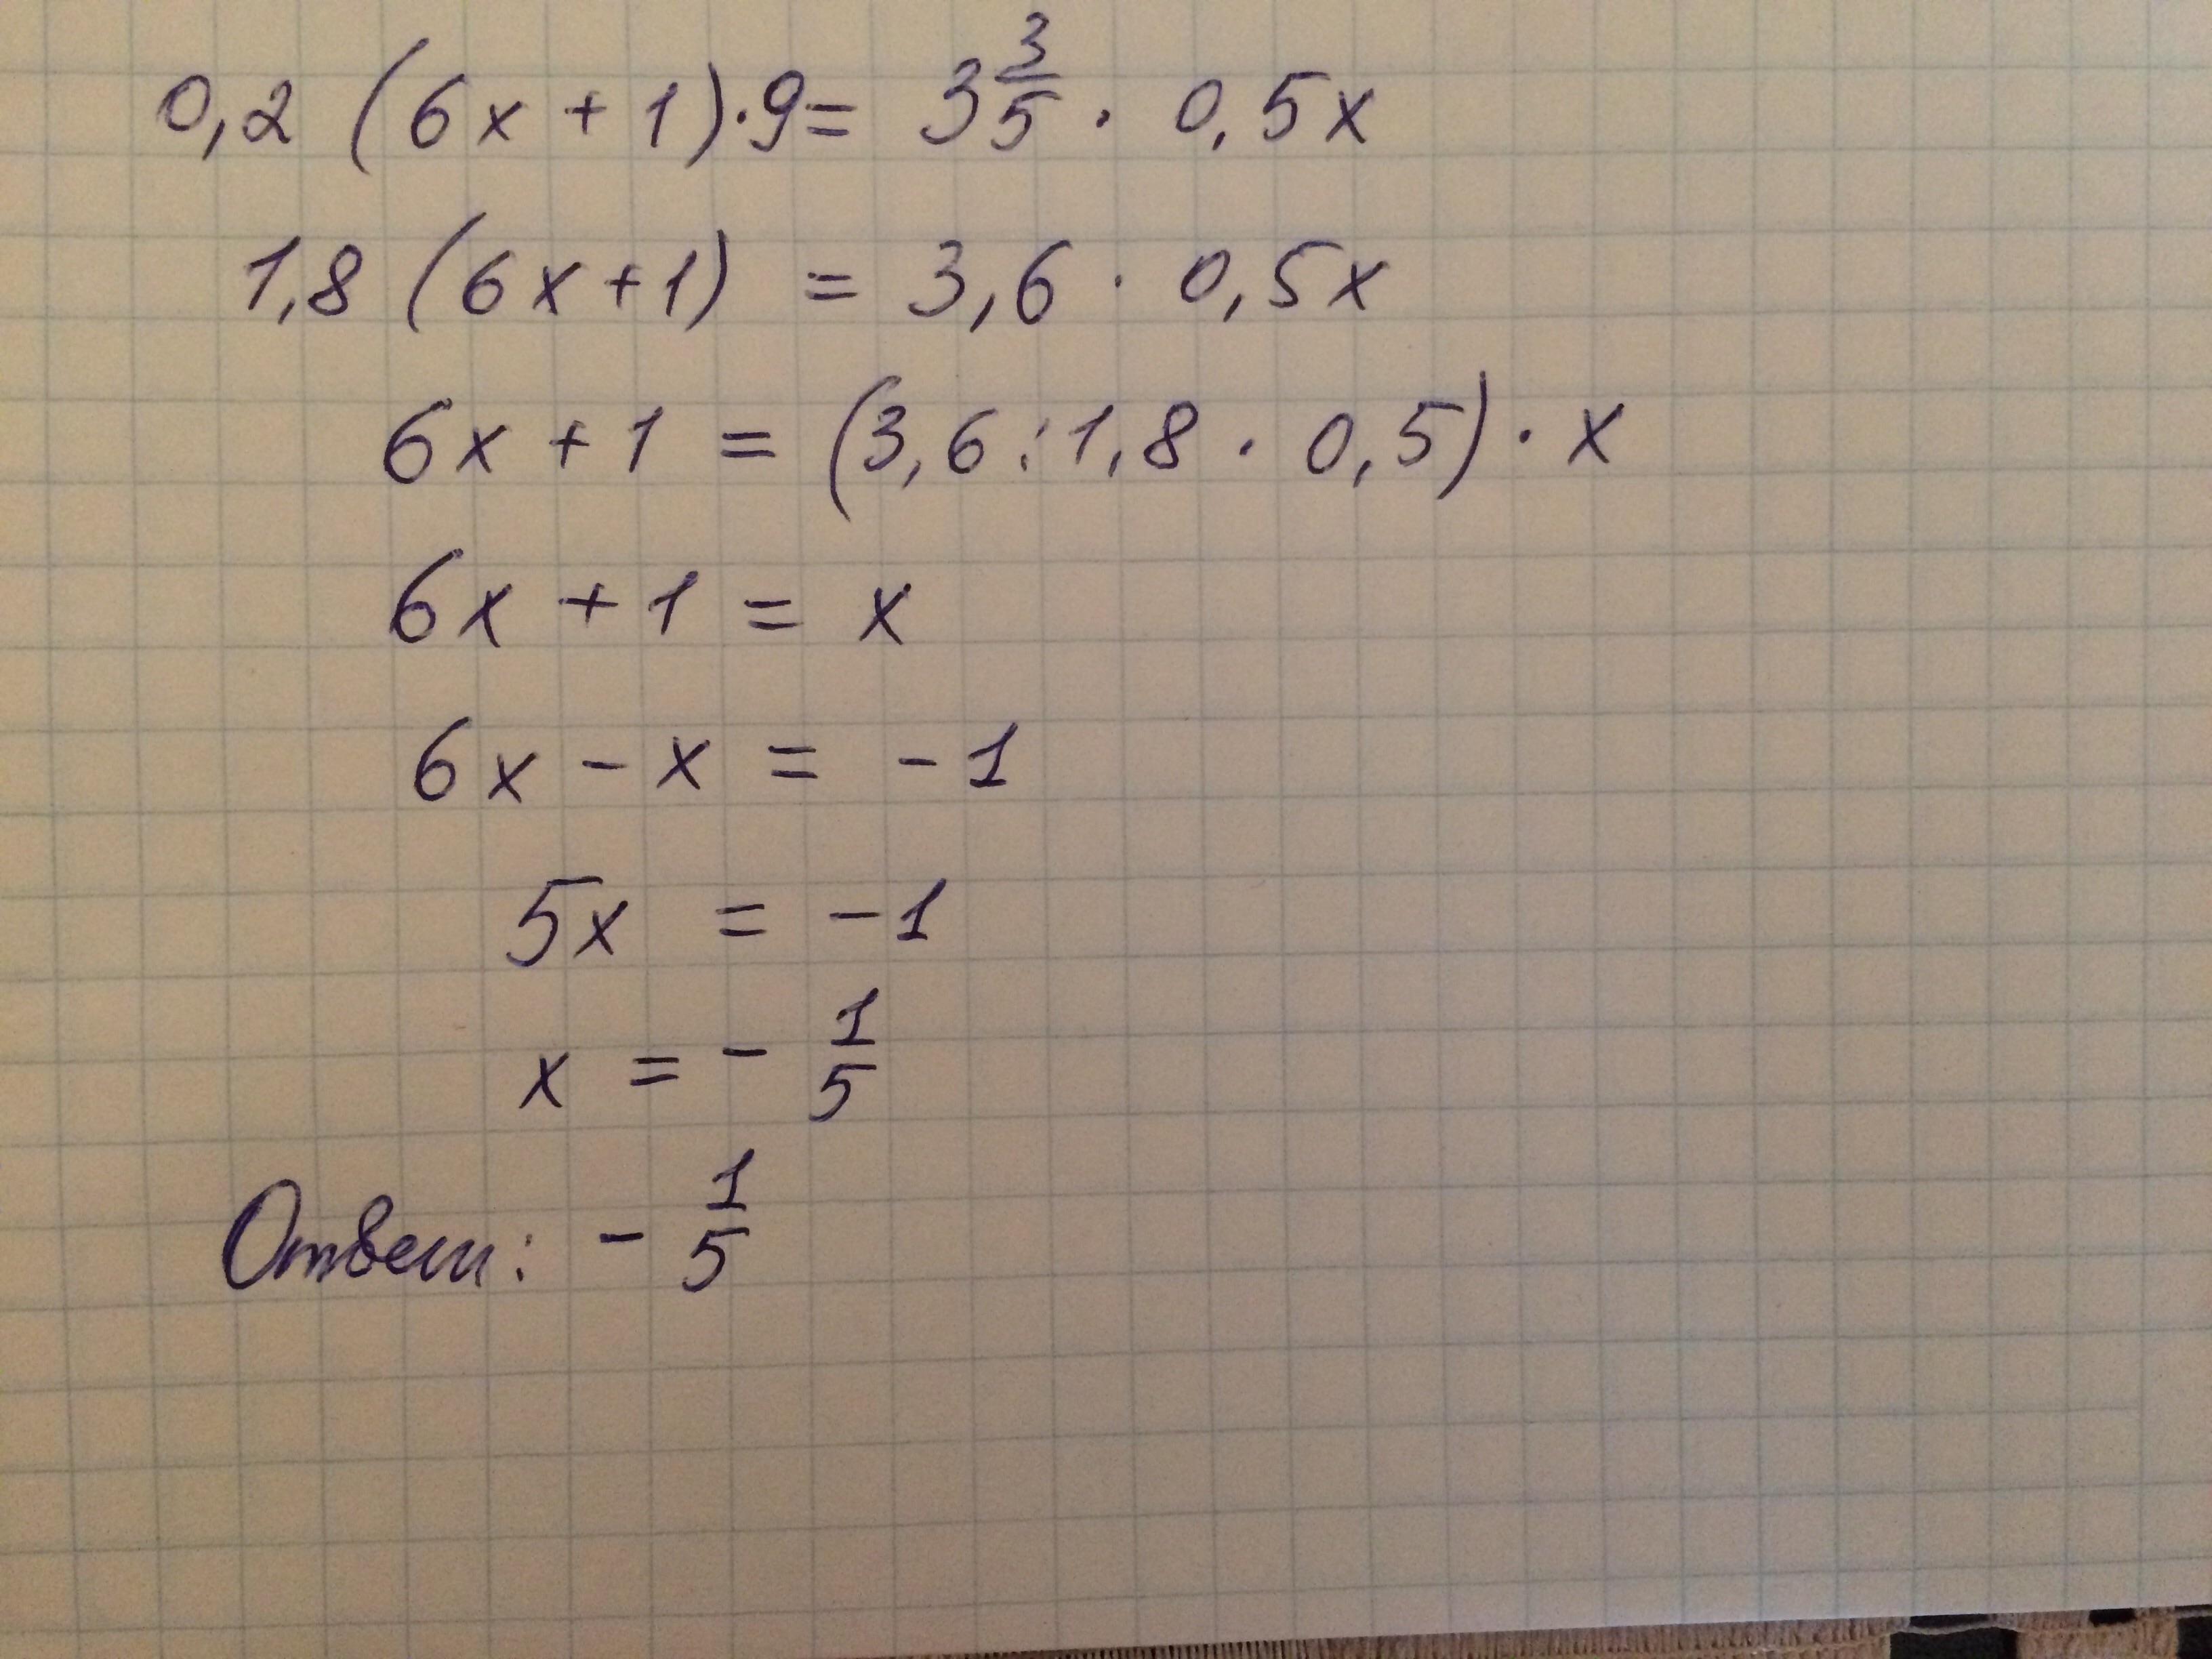 0,2 (6x + 1)·9 = 3 3/5 · 0,5x
1,8 (6x+1) = 3,6 · 0,5x
6x + 1 = (3,6 : 1,8 · 0,5) · x
6x + 1 = x
6x - x = - 1
5x = -1
x = - 1/5
Ответ: - 1/5